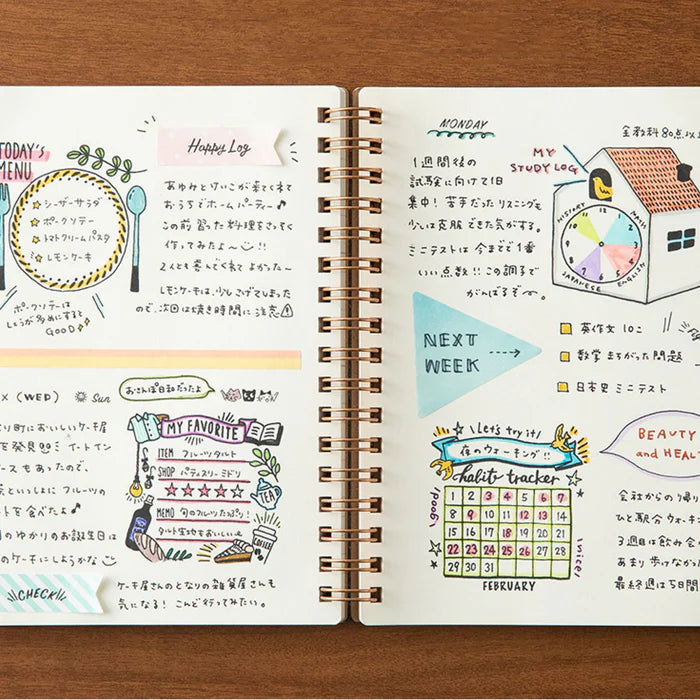 TODAY'S
MENU
シーザーサラダ
ポークソテー
トマトクリームパスタ
レモンケーキ
ポークソテーは
しょうが多めにすると
GOOD
Happy Log
あゆみとけいこが来てくれて
おうちでホームパーティー♪
この前習った料理をさっそく
作ってみたよ〜!!
2人とも喜んでくれて よかった〜
レモンケーキは、少しこげてしまった
ので、次回は焼き時間に注意
(WED)
Sun
おさんぽ日和だったよ
町においしいケーキ屋
を発見!! イートイン
スもあったので、
といっしょに フルーツの
トを食べたよ♪
のゆかりのお誕生日は
のケーキにしようかな
CHECK!
MY FAVORITE
ITEM フルーツタルト
SHOP パティスリーミドリ
MEMO 旬のフルーツたっぷり!
タルト生地もおいしい
TEA
COFFEE
ケーキ屋さんのとなりの雑貨屋さんも
気になる! こんど行ってみたい。
MONDAY
1週間後の
試験に向けて1日
集中! 苦手だったリスニングも
少しは克服できた気がする。
ミニテストは今までで1番
いい点数!! この調子で
がんばるぞ〜。
MY
STUDY LOG
全教科80点以
HISTORY
MATH
ENGLISH
JAPANESE
NEXT
WEEK
英作文10こ
数学まちがった問題
日本史ミニテスト
Let's try it!
夜のウォーキング!!
habit tracker
good!
nice!
1 2 3 4 5 6 7
8 9 10 11 12 13 14
15 16 17 18 19 20 21
22 23 24 25 26 27 28
29 30 31
FEBRUARY
BEAUTY
and HEAL
会社からの帰り
ひと駅分ウォーキ
3週目は飲み会
あまり歩けなか
最終週は5日間